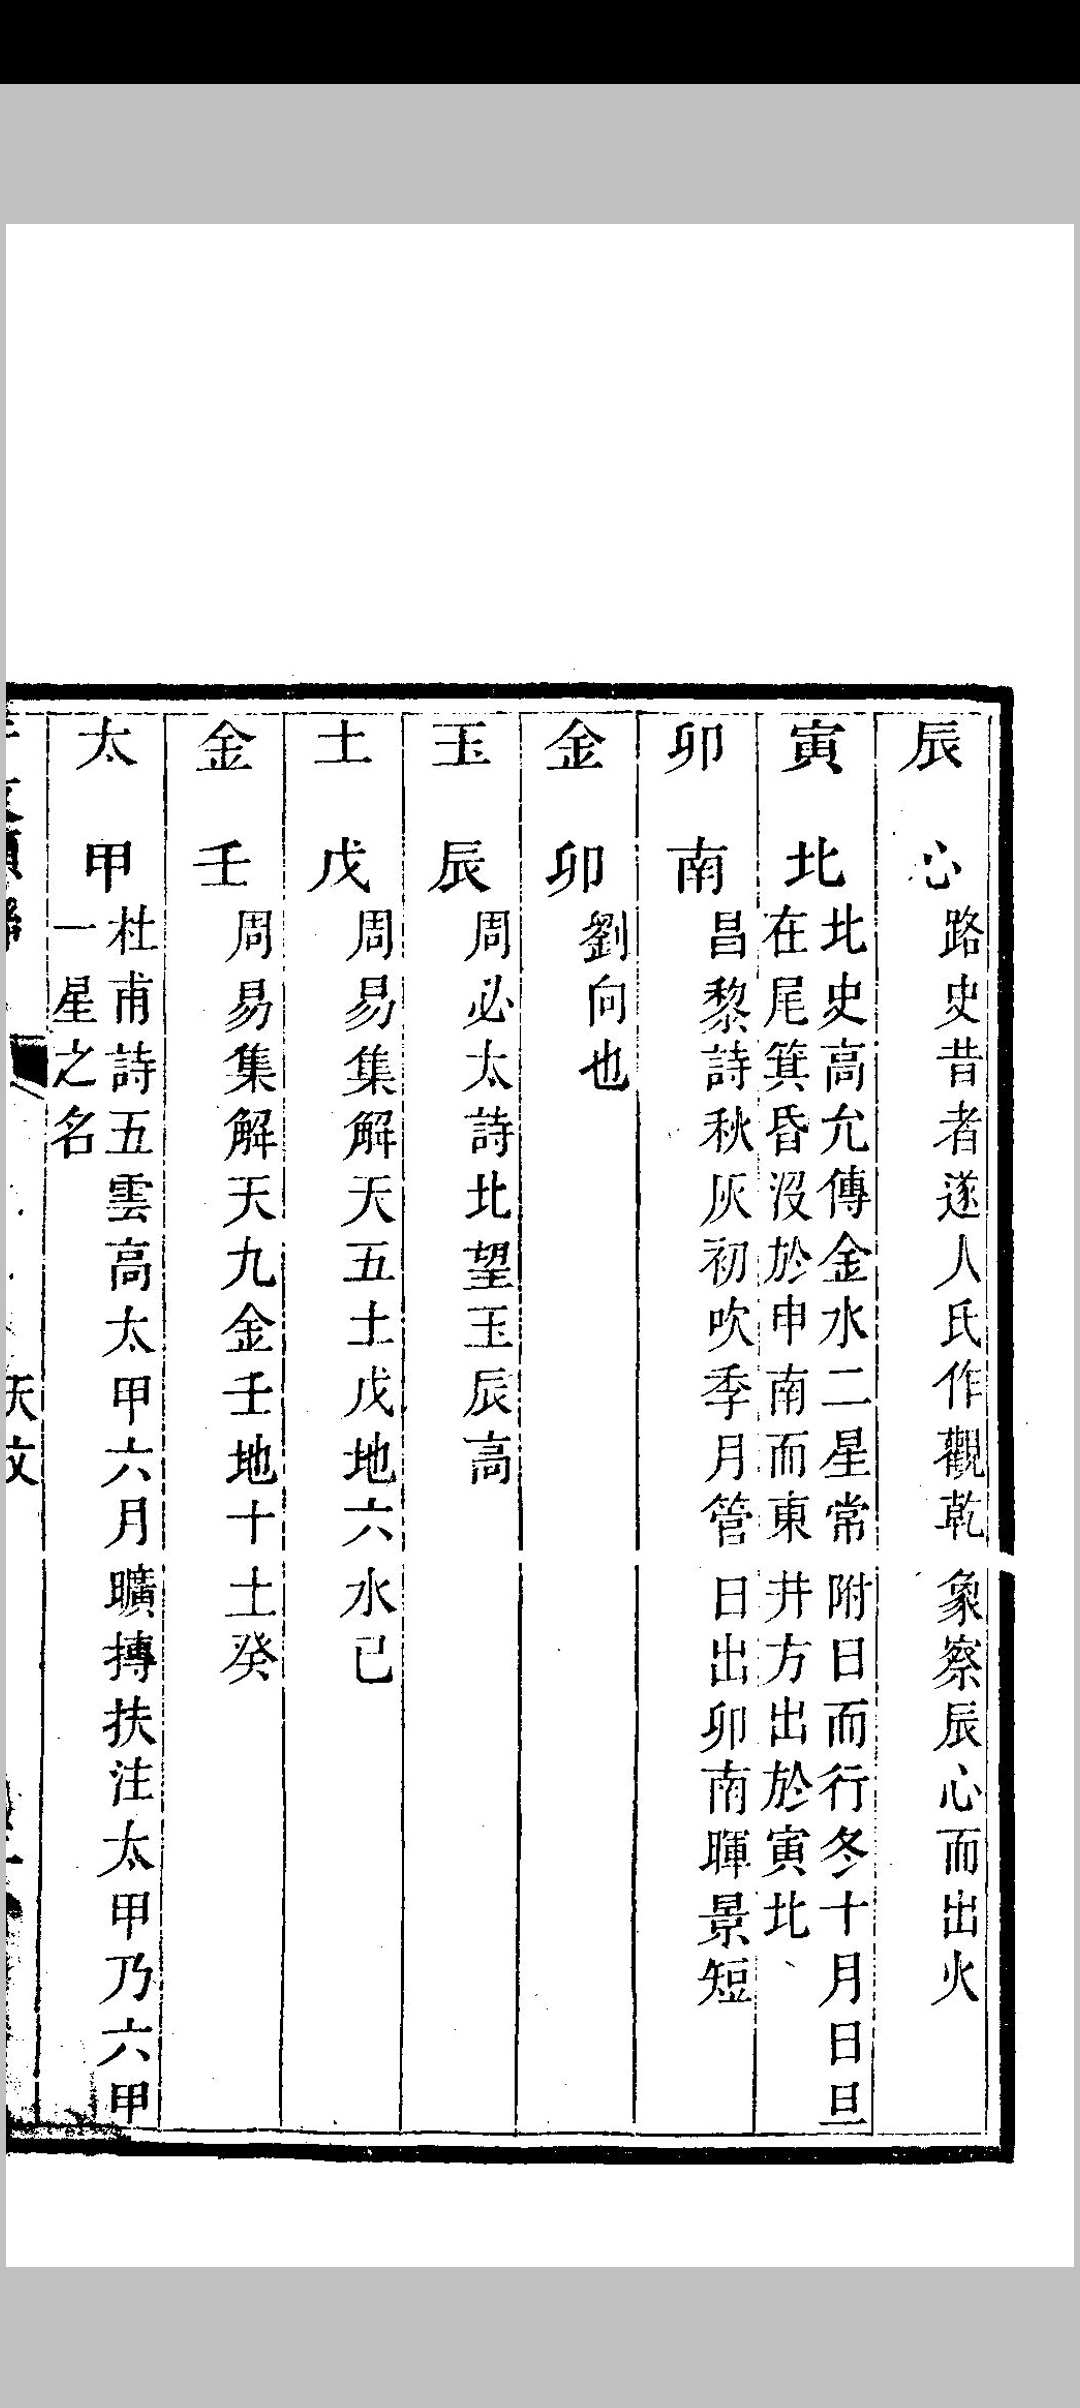 辰心路史昔者遂人氏作觀乾象察辰心而出火
寅北北史高允傳金水二星常附日而行冬十月日旦
在尾箕昏沒於申南而東井方出於寅北
卯南昌黎詩秋灰初吹季月管日出卯南暉景短
金卯劉向也
玉辰周必太詩北望玉辰高
土戊周易集解天五土戊地六水己
金壬周易集解天九金壬地十土癸
太甲杜甫詩五雲高太甲六月曠摶扶注太甲乃六甲
一星之名
天文